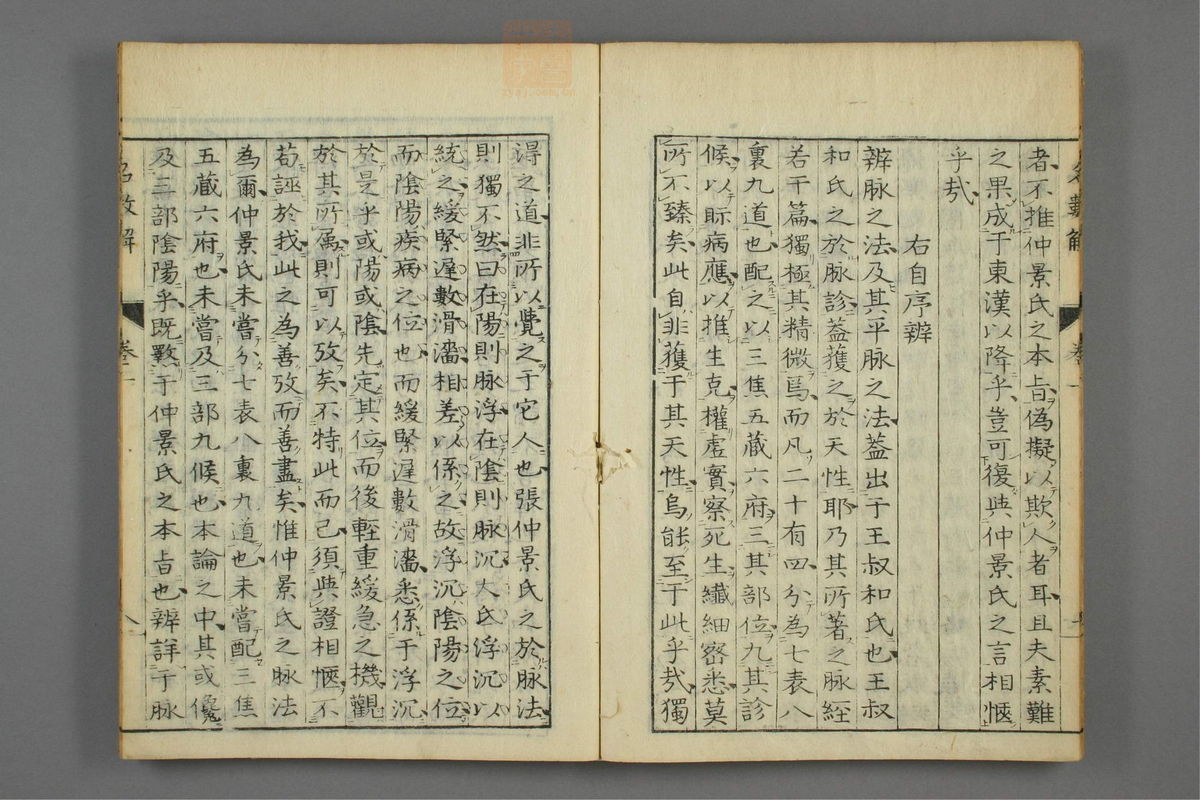 者不推仲景氏之本旨偽擬以欺人者耳且夫素難
之果成于東漢以降乎豈可復與仲景氏之言相愜
乎哉
右自序辨
辨脉之法及其平脉之法蓋出于王叔和氏也王叔
和氏之於脉診蓋獲之於天性耶乃其所著之脉經
若干篇獨極其精微焉而凡二十有四分為七表八
裏九道也配之以三焦五藏六府三其部位九其診
候以眎病應以推生克權虛實察死生纖細密悉莫
所不臻矣此自非獲于其天性烏能至于此乎哉獨
淂之道非所以覺之于它人也張仲景氏之於脉法
則獨不然曰在陽則脉浮在陰則脉沉大氐浮沉以
統之緩緊遲數滑濇相差以係之故浮沉陰陽之位
而陰陽疾病之位也而緩緊遲數滑濇悉係于浮沉
於是乎或陽或陰先定其位而後輕重緩急之機觀
於其所属則可以攷矣不特此而已須與證相愜不
苟誣於我此之為善攷而善盡矣惟仲景氏之脉法
為爾仲景氏未嘗分七表八裏九道也未嘗配三焦
五藏六府也未嘗及三部九候也本論之中其或儳
及三部陰陽乎既斁于仲景氏之本旨也辨詳于脉
名數解
卷一
八